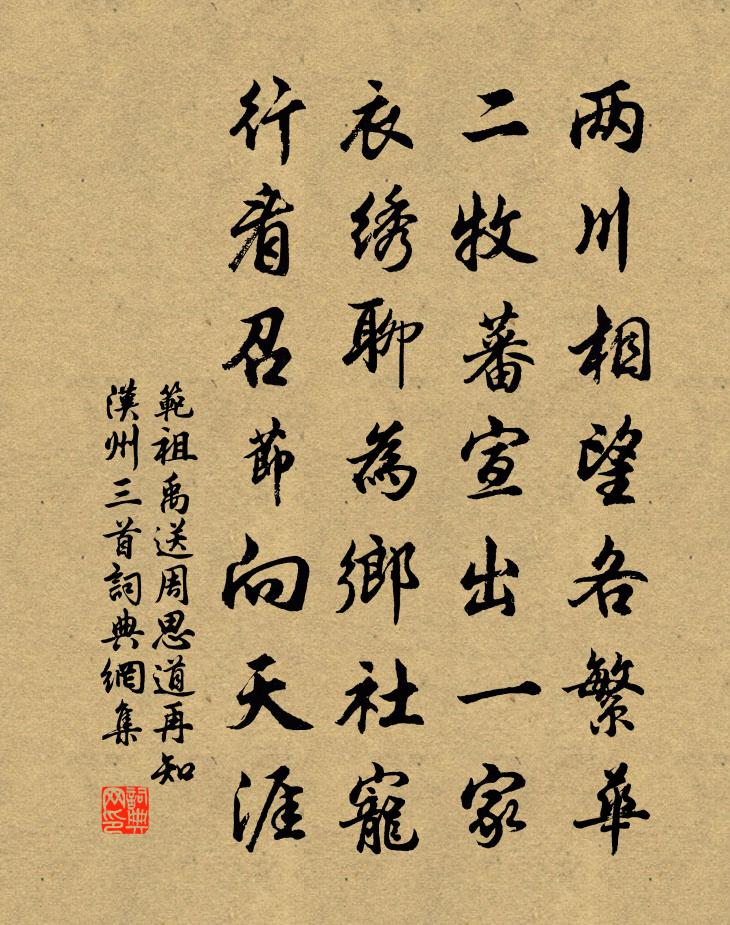 两川相望各繁華
二牧蕃宣出一家
衣绣聊為鄉社寵
行看召節向天涯
範祖禹送周思道再知
漢州三首詞典網集
詞典網印